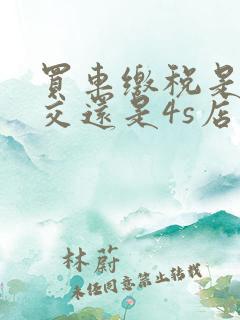 買車繳稅是
交還是4s店
林蔚
未經同意禁止轉載